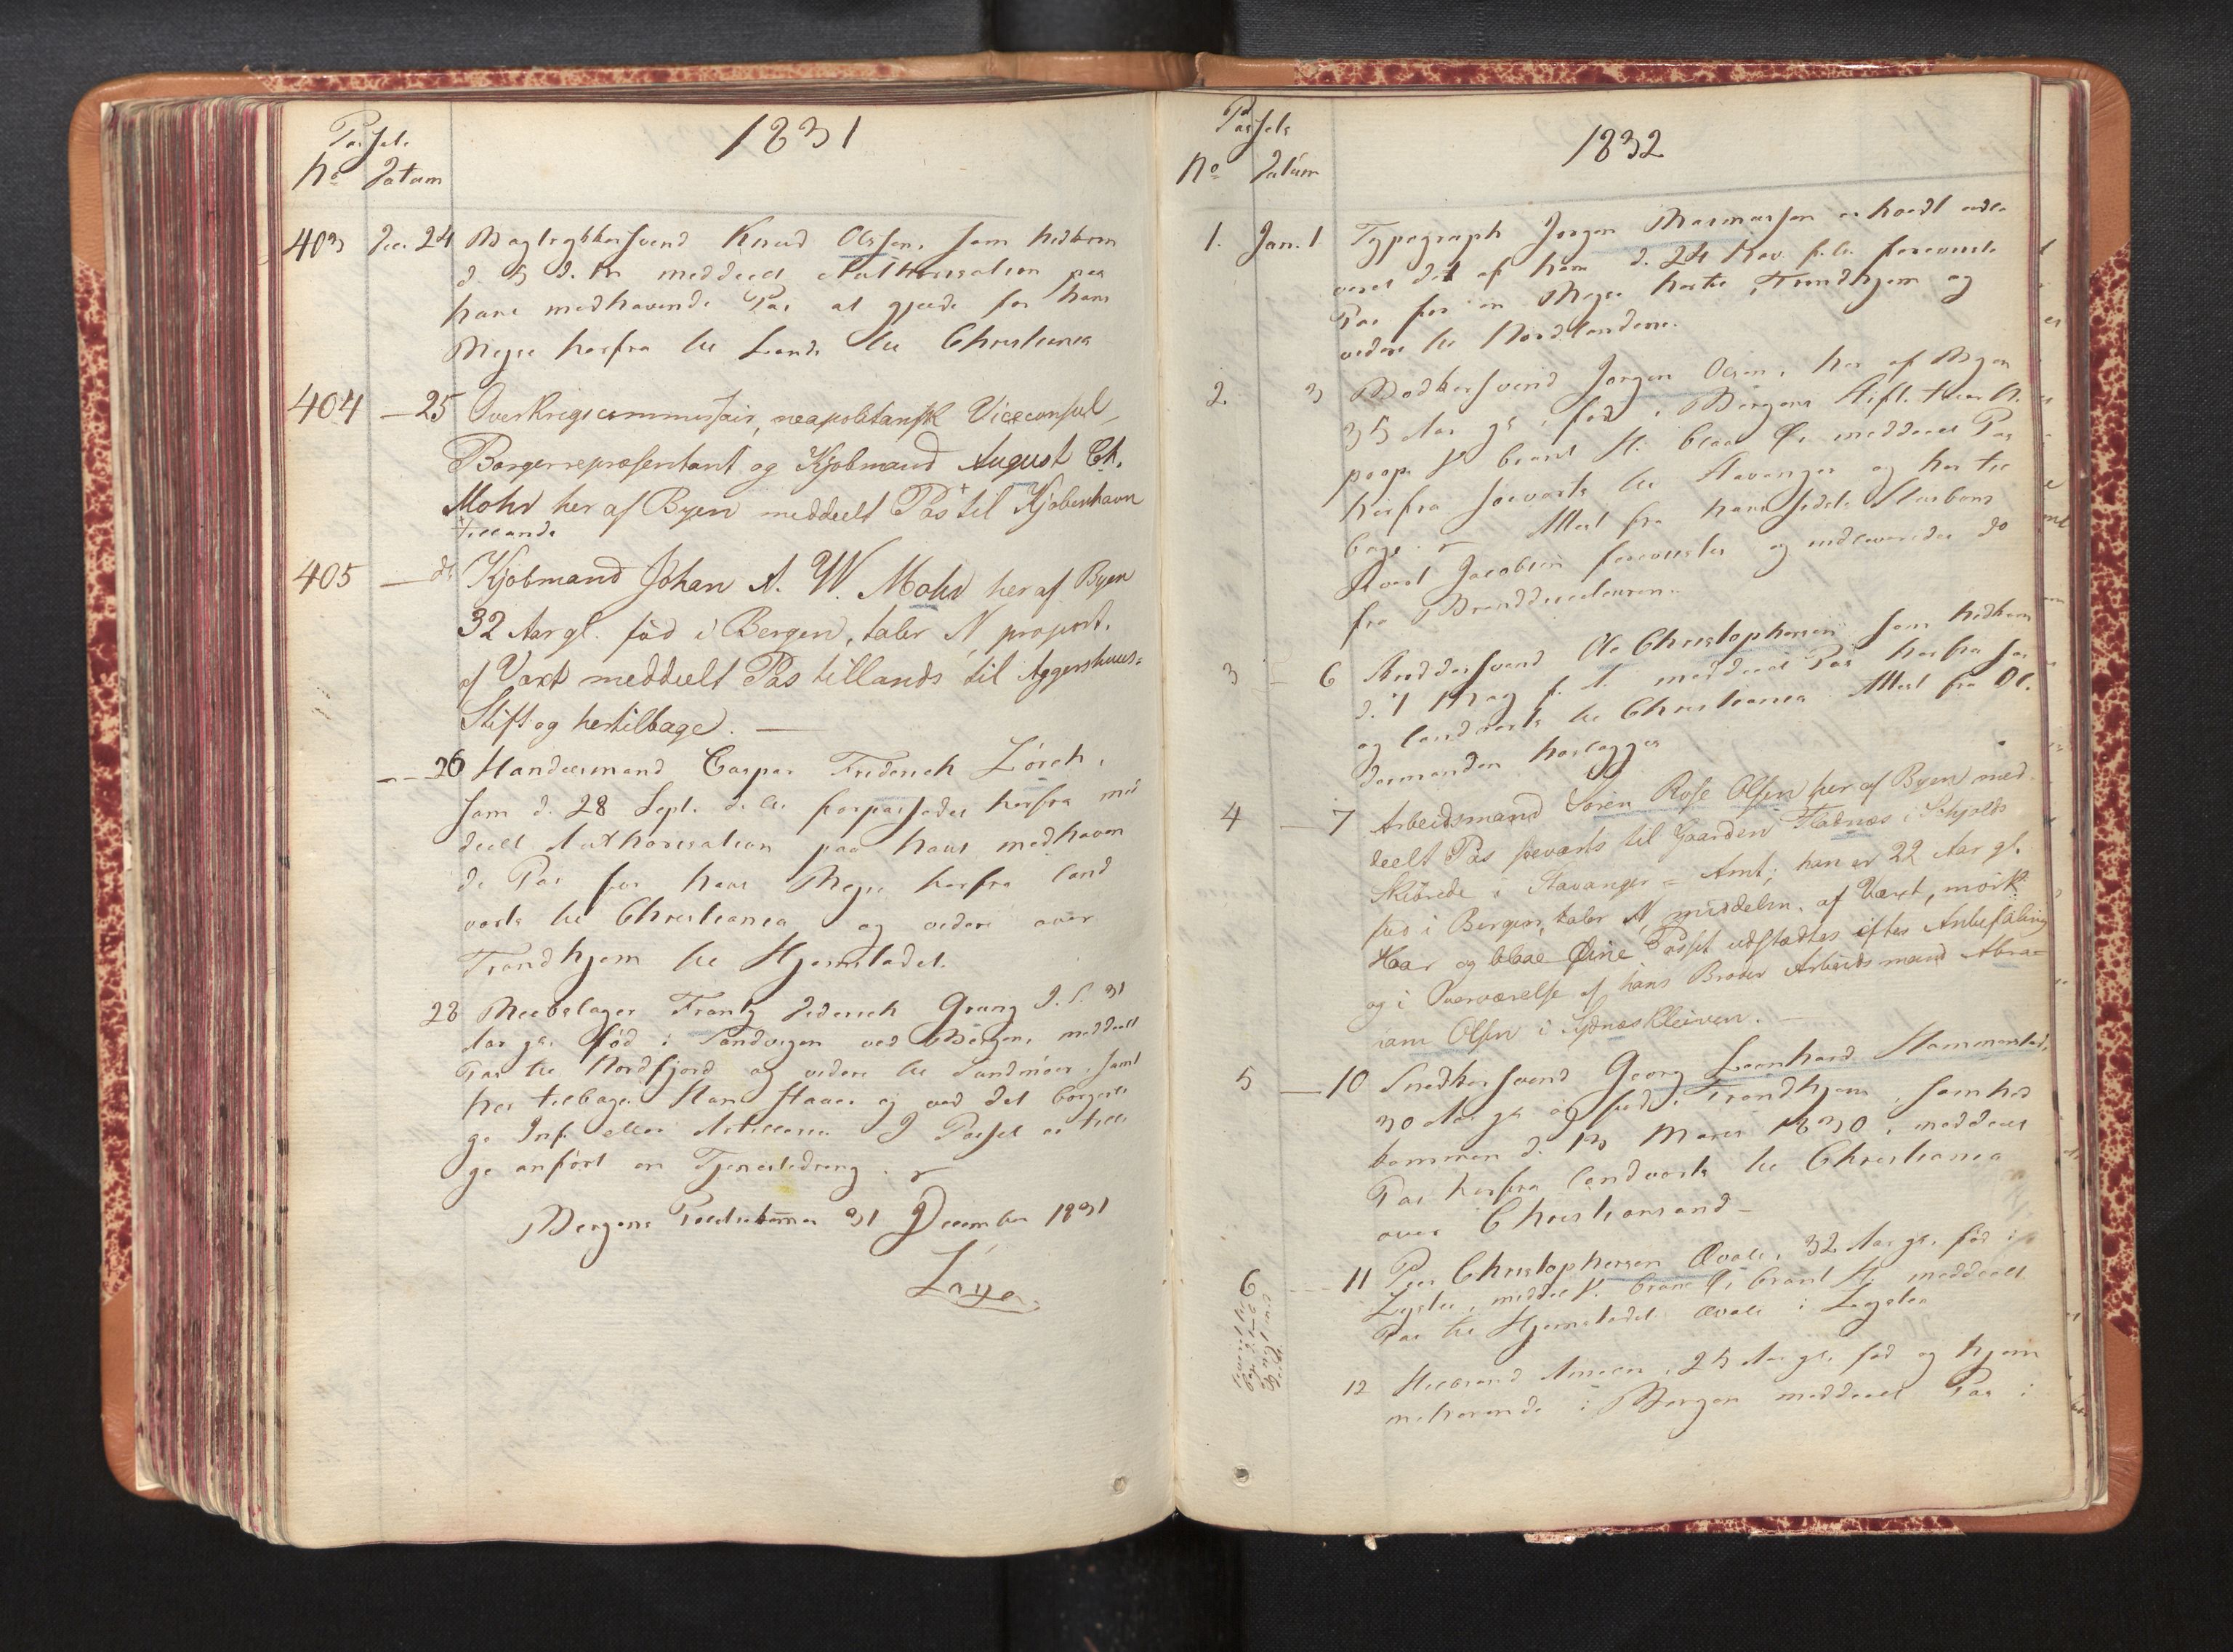 Passets
1831
No Datum
403 Dec. 24 Bogtrykkersvend Knud Olsen, som hidkom
d. 5 d. M. meddeelt Authorisation paa
hans medhavende Pas at gjelde for hans
Reyse herfra til Lands til Christiania
404 — 25 Overkrigscommissair, neapolitansk Viceconsul,
Borgerrepræsentant og Kjøbmand August Ch.
Mohr her af Byen meddeelt Pas til Kjøbenhavn
tillands
405 — do Kjøbmand Johan A. W. Mohr her af Byen
32 Aar gl. fød i Bergen, taler N, proport.
af Vaxt meddeelt Pas tillands til Aggershuus=
Stift og hertilbage. —
— 26 Handelsmand Caspar Friderich Lorch,
som d. 28 Sept. herfra med
deelt Authorisation paa hans medhaven
de Pas for hans Reyse herfra land
værts til Christiania og videre over
Trondhjem til Hjemstedet.
28 Reebslager Frantz Diderich Grung 31
Aar gl. fød i Sandvigen ved Bergen, meddeelt
Pas til Nordfjord og videre til Sundmøer, samt
her tilbage. Han staaer ej ved det borgerli
ge Inf. eller Artilleri. I Passet er tilli
ge anført en Tjenestedreng.
Bergens Politikammer 31 December 1831
Passets
1832
No Datum
1. Jan. 1. Typograph Jørgen
det af ham d. 24 Nov. f. A. foreviste
Pas for en Reyse her til Trondhjem og
videre til Nordlandene.
2. 3 Bødkersvend Jørgen Olsen, her af Byen
35 Aar gl., fød i Bergens Stift. taler N.
prop. V. bruunt H. blaae Ø. meddeelt Pas
herfra søeværts til Stavanger og her til
bage. Attest fra hans sidste Huusbond
Jacobsen forevistes og indleveredes do
fra Branddirecteuren.
3 6 svend Ole Christophersen som hidkom
d. 7 May f. A. meddeelt Pas herfra søe
og landværts til Christiania. Attest fra Ol
dermanden
4 — 7 Arbeidsmand Søren Rose Olsen her af Byen med
deelt Pas søeværts til Gaarden Fladnæs i Schjolds
Skibrede i Stavanger = Amt; han er 22 Aar gl.
fød i Bergen, taler N, middelm. af Vaxt, mörk
Haar og blaae Øine Passet udstædtes efter Anbefaling
og i Overværelse af hans Broder Arbeidsmand Abra=
ham Olsen i Sydneskleiven. —
5 — 10 Snedkersvend Georg Leonhard Hammerstad,
30 Aar gl. og fød i Trondhjem, som hid
kommen d. 13 Marts 1830, meddeelt
Pas herfra landværts til Christiania
over Christiansand —
6 11 Peer Christophersen Qvale, 32 Aar gl. fød i
Lyster, middel V. bruunt H. meddeelt
Pas til Hjemstedet Qvale i Lyster
12 25 Aar gl. fød og hjem
mehørende i Bergen meddeelt Pas i